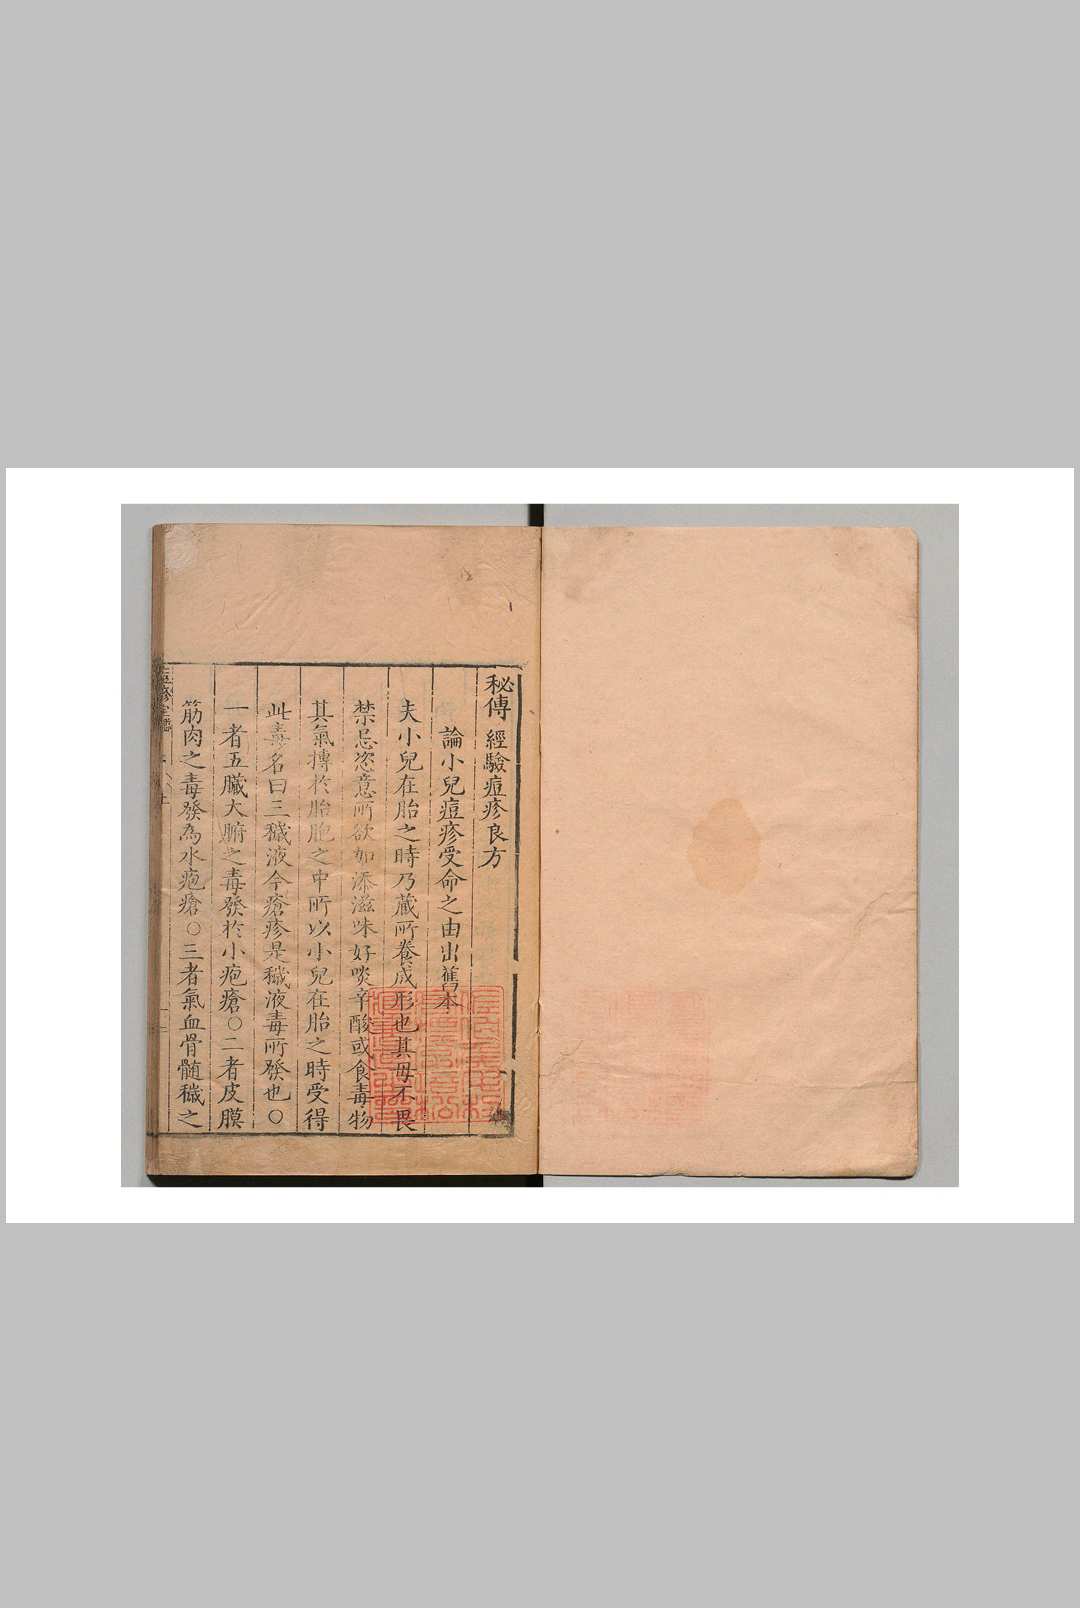 秘傳經驗痘疹良方
論小兒痘疹受命之由出舊本
夫小兒在胎之時乃蔵所養成形也其母不畏
禁忌恣意所欲如添滋味好啖辛酸或食毒物
其氣摶於胎胞之中所以小兒在胎之時受得
此毒名曰三穢液今瘡疹是穢液毒所發也〇
一者五臟六腑之毒發於小疱瘡〇二者皮膜
筋肉之毒發為水疱瘡〇三者氣血骨髓穢之